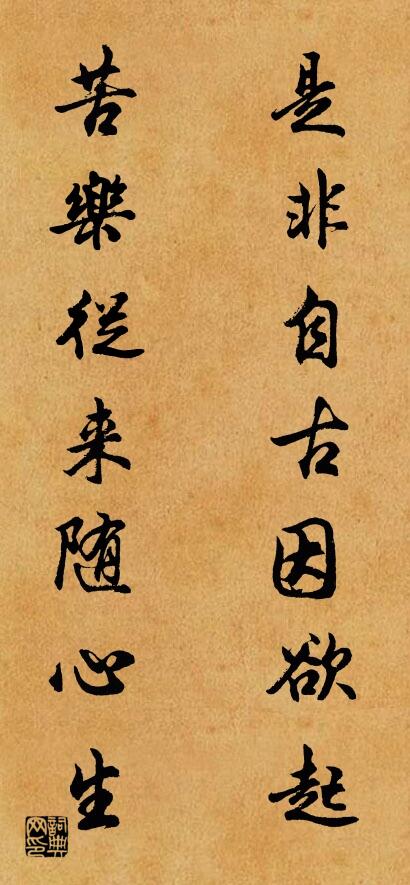 是非自古因欲起
苦樂從来随心生
詞典網印